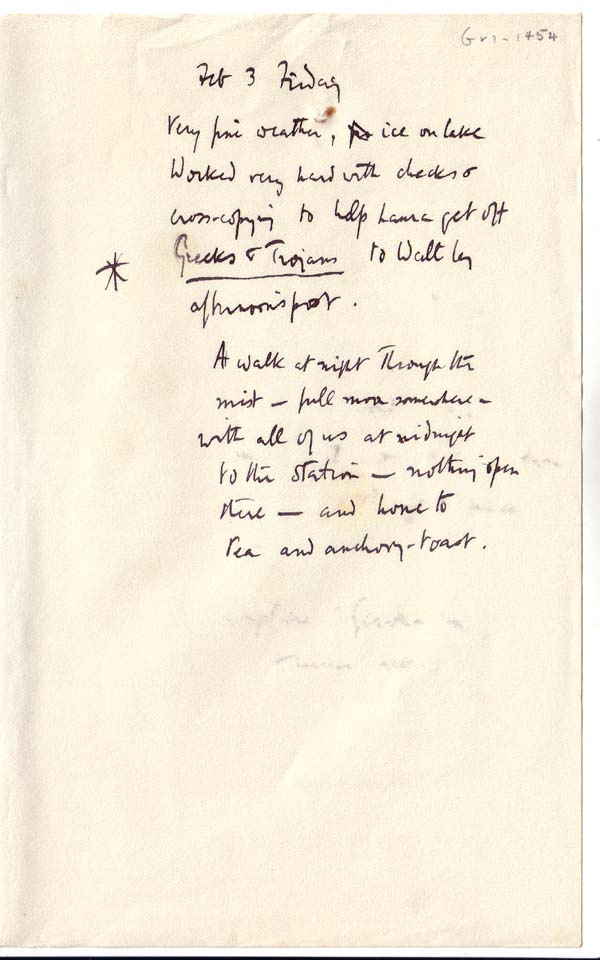 Grv-1454
Feb 3 Friday
Very fine weather, no ice on lake
Worked very hard with checks &
cross-copying to help Laura get off
* Greeks & Trojans to Watt by
afternoon's post.
A walk at night through the
mist – full moon somewhere –
with all of us at midnight
to the station – nothing open
there – and home to
tea and anchovy-toast.